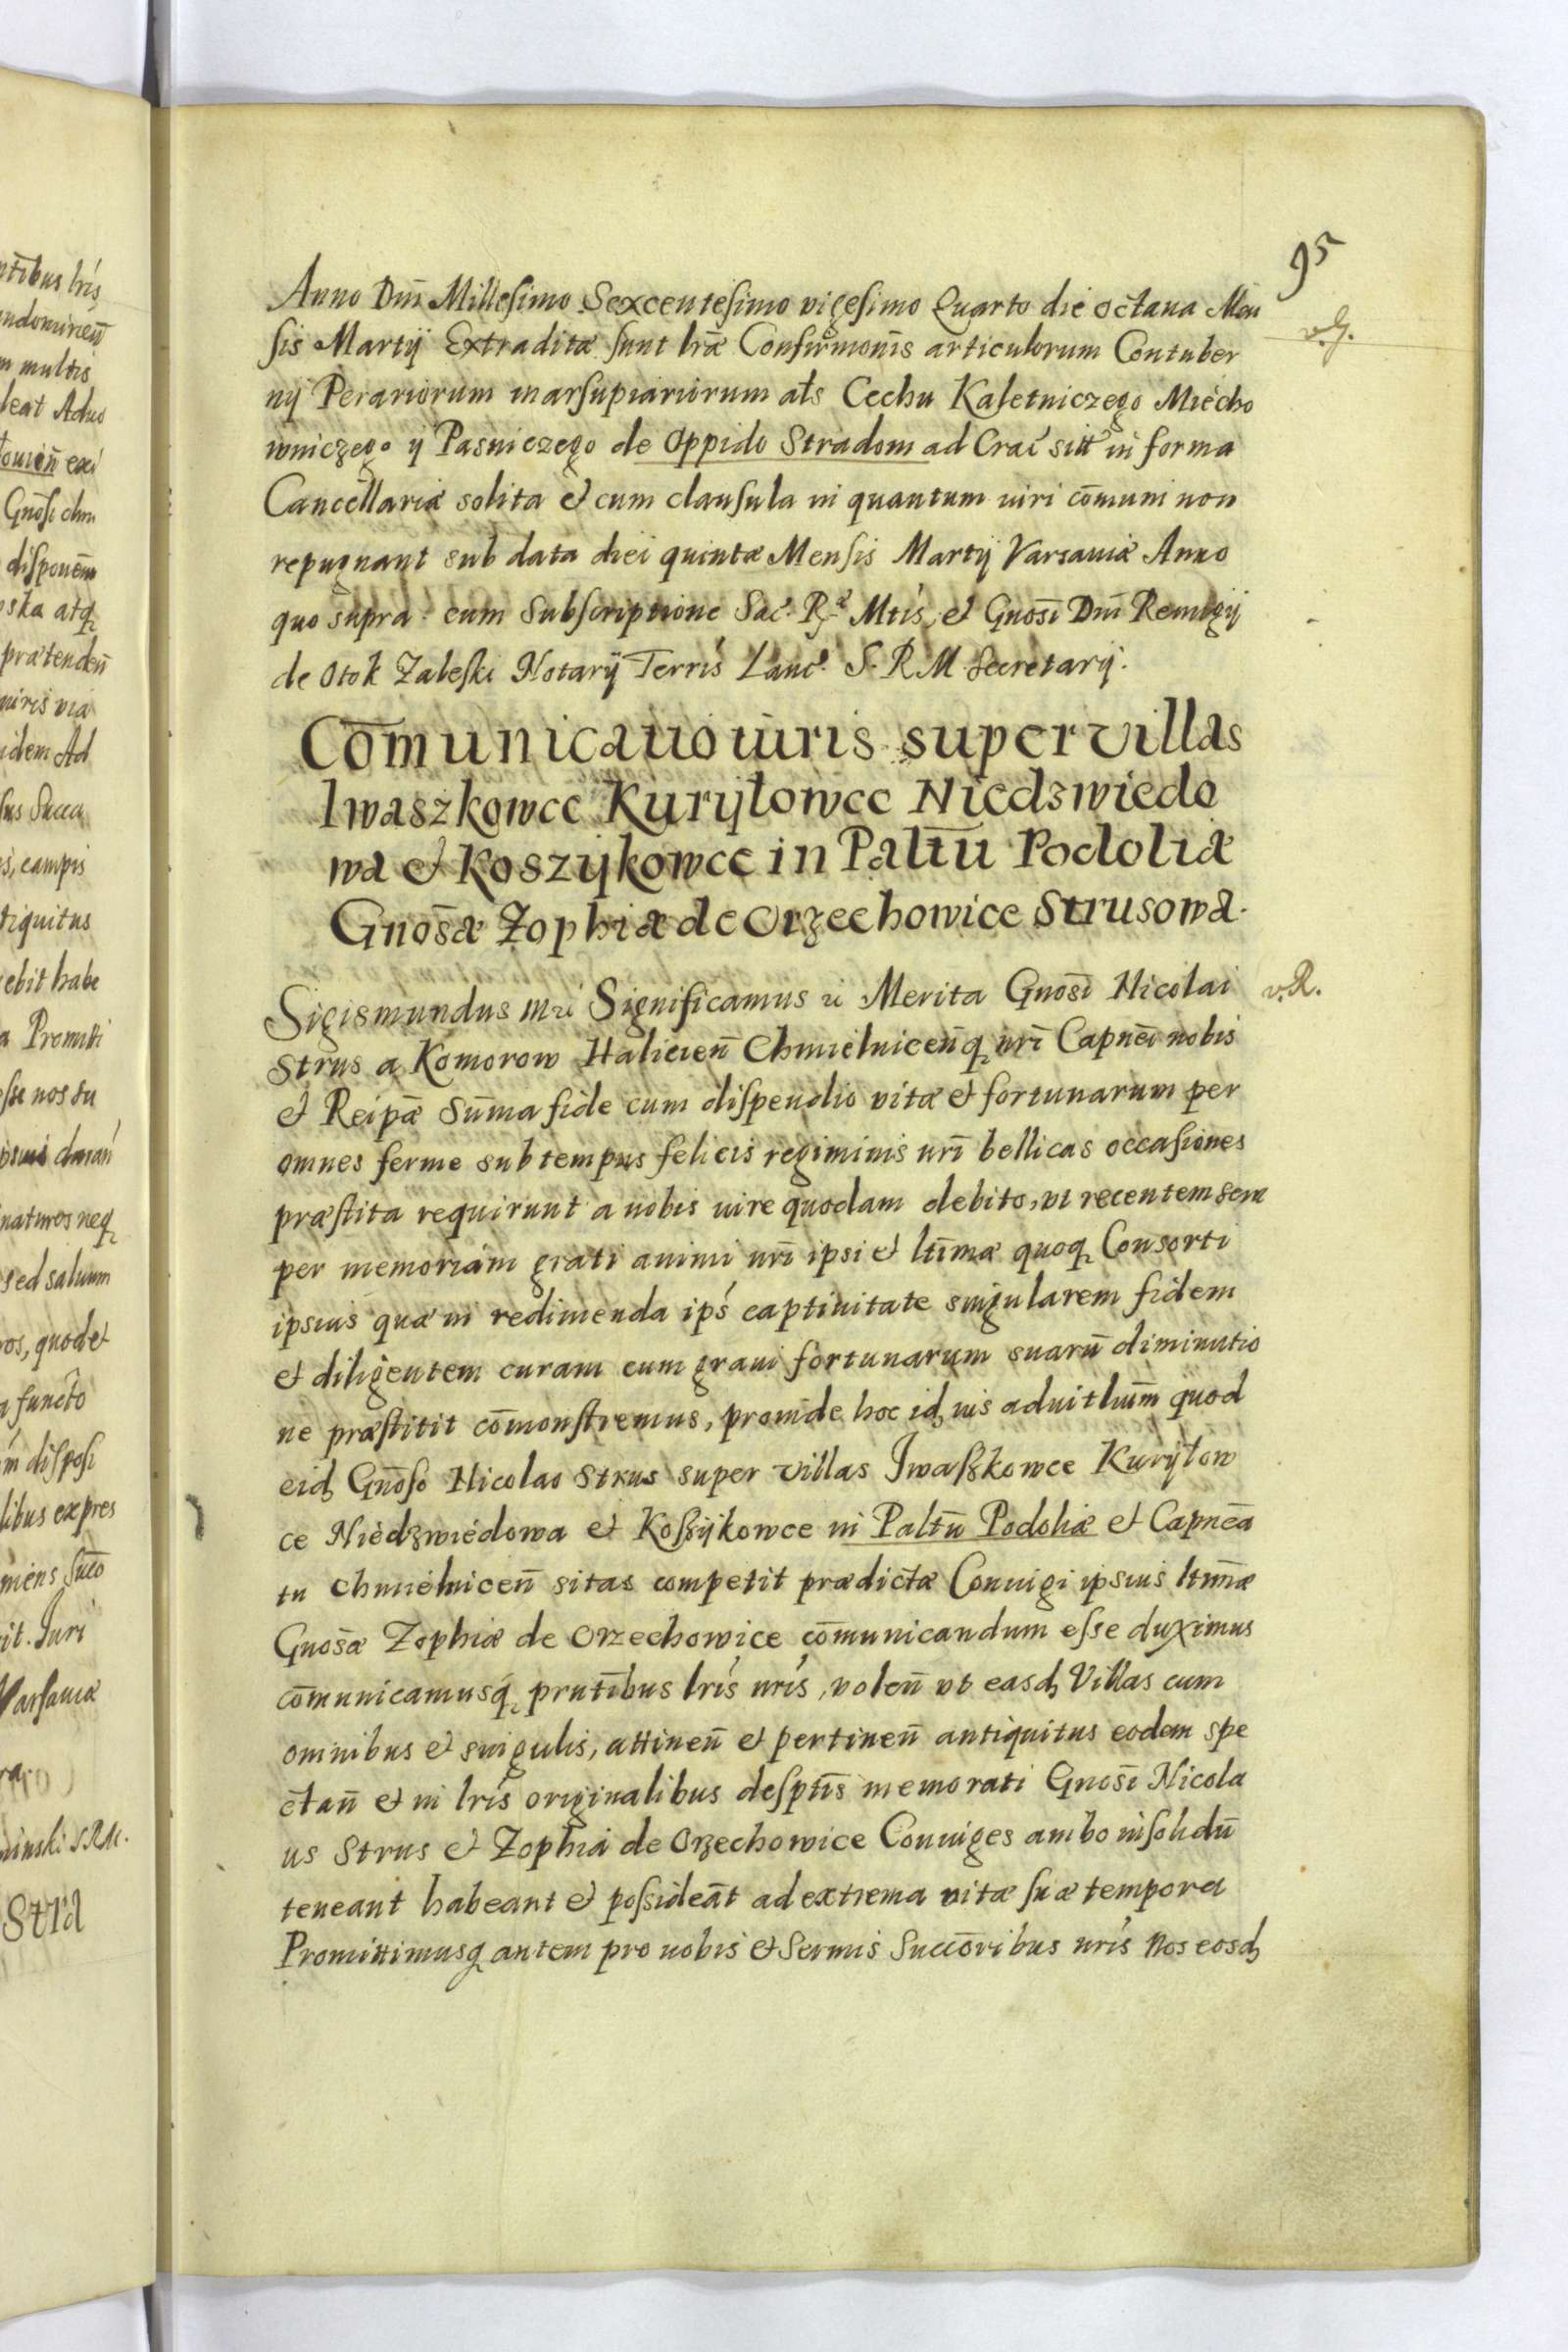 95
Anno Dñi Millesimo Sexcentesimo vigesimo Quarto die octaua Men
sis Martij Extraditæ sunt lræ Confirmonis articulorum Contuber
nij Perariorum marsupiariorum als Cechu Kaletniczego Miecho
wniczego y Pasniczego de Oppido Stradom ad Crac sitt in forma
Cancellariæ solita et cum clausula in quantum iuri cōmuni non
repugnant sub data diei quintæ Mensis Martij Varsauiæ Anno
quo supra cum Subscriptione Sac. R. Mtis, et Gnosi Dñi Remigij
de Otok Zaleski Notarij Terris Lanc. S. R. M. Secretarij.
v.G.
Cōmunicatio iuris super villas
Iwaszkowce Kuryłowce Niedzwiedo
wa et Koszykowce in Paltũ Podoliæ
Gnosæ Zophiæ de Orzechowice Strusowa.
Sigismundus etc. Significamus etc. Merita Gnosi Nicolai
v.R.
Strus a Komorow Haliciēn Chmielnicenq nri Capnei nobis
et Reipæ Suma fide cum dispendio vitæ et fortunarum per
omnes ferme sub tempus felicis regiminis nri bellicas occasiones
præstita requirunt a nobis iure quodam debito, vt recentem sem
per memoriam grati animi nri ipsi et ltimæ quoq Consorti
ipsius quæ in redimenda ips captiuitate singularem fidem
et diligentem curam cum graui fortunarum suarū diminutio
ne præstitit cōmonstremus, proinde hoc id ius aduitlium quod
eid Gnoso Nicolao Strus super villas Iwaszkowce Kuryłow
ce Niedzwiedowa et Koszykowce in Paltũ Podoliæ et Capnea
tu Chmielnicen sitas competit prædictæ Coniugi ipsius ltimæ
Gnosæ Zophiæ de Orzechowice cōmunicandum esse duximus
cōmunicamusq prntibus lris nris, volen vt easd Villas cum
omnibus et singulis, attinen et pertinen antiquitus eodem spe
ctan et in lris originalibus desptis memorati Gnosi Nicola
us Strus et Zophia de Orzechowice Coniuges ambo insolidū
teneant habeant et possideāt ad extrema vitæ suæ tempora
Promittimusq antem pro nobis et Sermis Succoribus nris Nos eosd